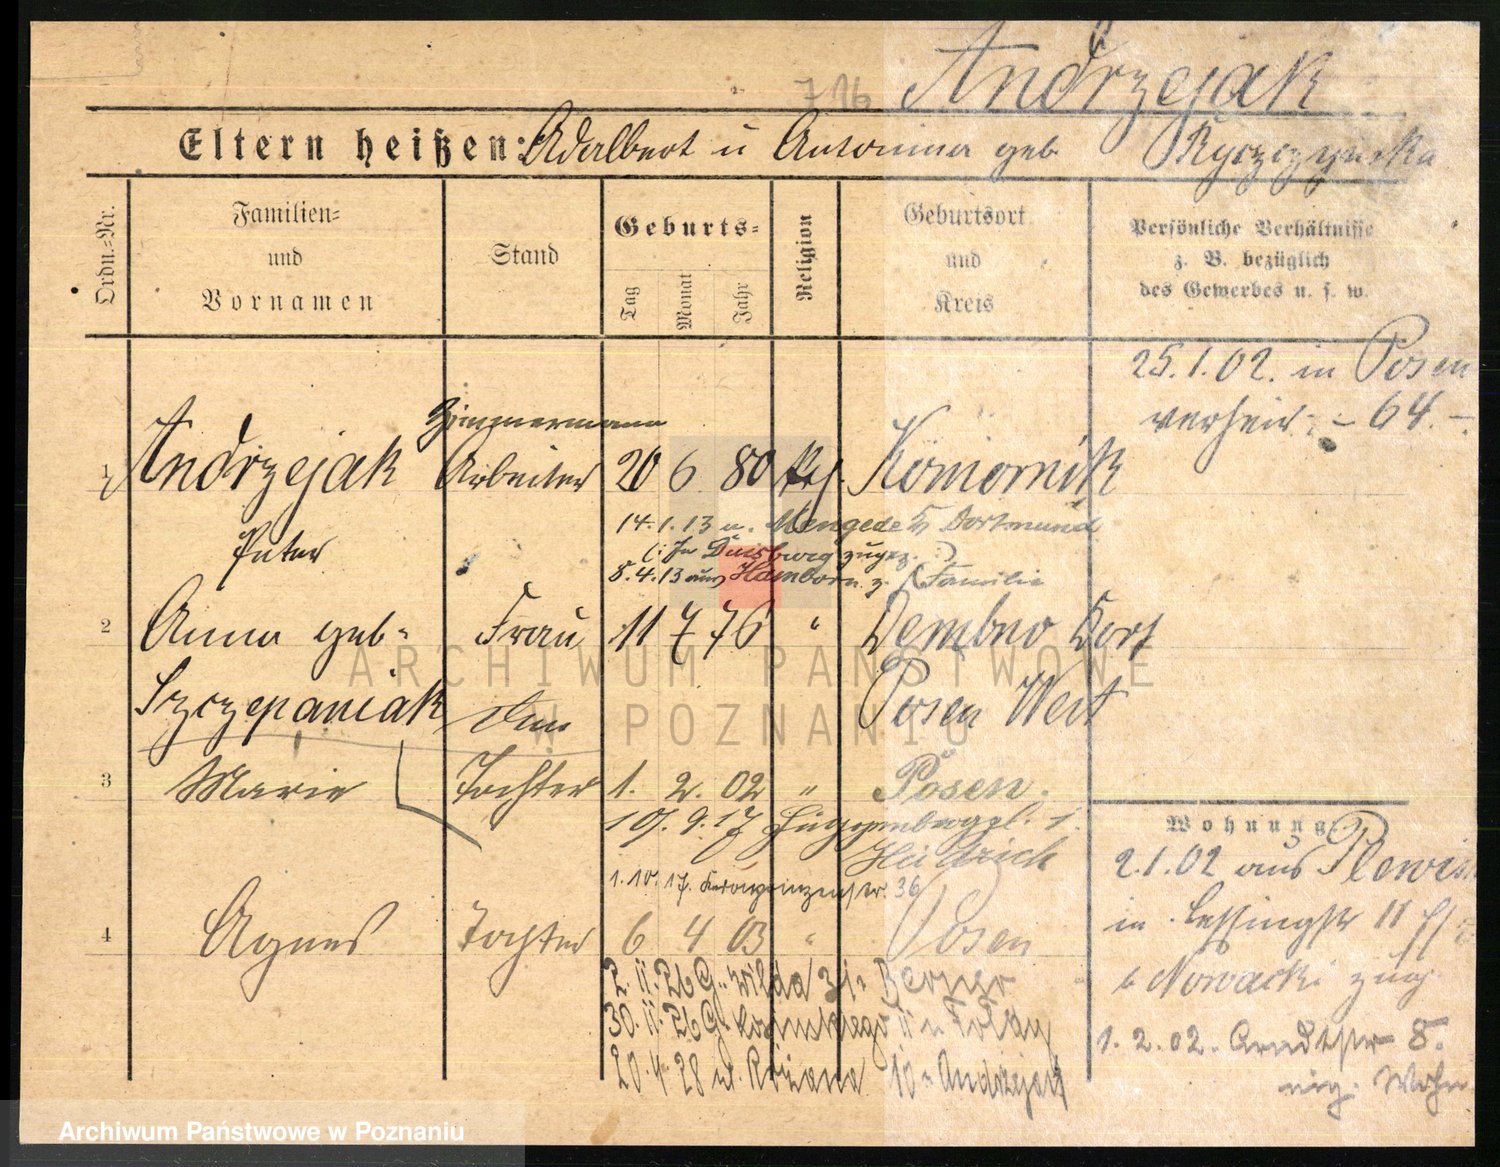 716 Andrzejak
Eltern heißen: Adalbert u Antonina geb Ryczynska
Ordn.=Nr.
Familien=
und
Vornamen
Stand
Geburts=
Tag
Monat
Jahr
Religion
Geburtsort
und
Kreis
Persönliche Verhältnisse
z. B. bezüglich
des Gewerbes u. s. w.
25.1.02. in Posen
verheir. - 64. -
Zimmermann
1 Andrzejak Arbeiter 20 6 80 kth. Komornik
Peter
14.1.13 n. Mengede Dortmund
(: In Duisburg zugez. :)
8.4.13 aus Hamborn z. (Familie
2 Anna geb= Frau 11 7 76 " Dembno Dorf
Szczepaniak Posen West
3 Marie Tochter 1. 2. 02 " Posen.
10.9.17 1.
1.10.17. Kronprinzenstr. 36
4 Agnes Tochter 6 4 03 " Posen
2.11.26 G. Wilda 31 Berger
30.11.26 G. 11
20.4.28 ul. Różana 10 Andrzejak
Wohnung.
2.1.02 aus Plewisk
in Lessingstr 11
b Nowacki zug.
1.2.02. Arndtstr 8.
eig. Wohn
ARCHIWUM PAŃSTWOWE
W POZNANIU
Archiwum Państwowe w Poznaniu